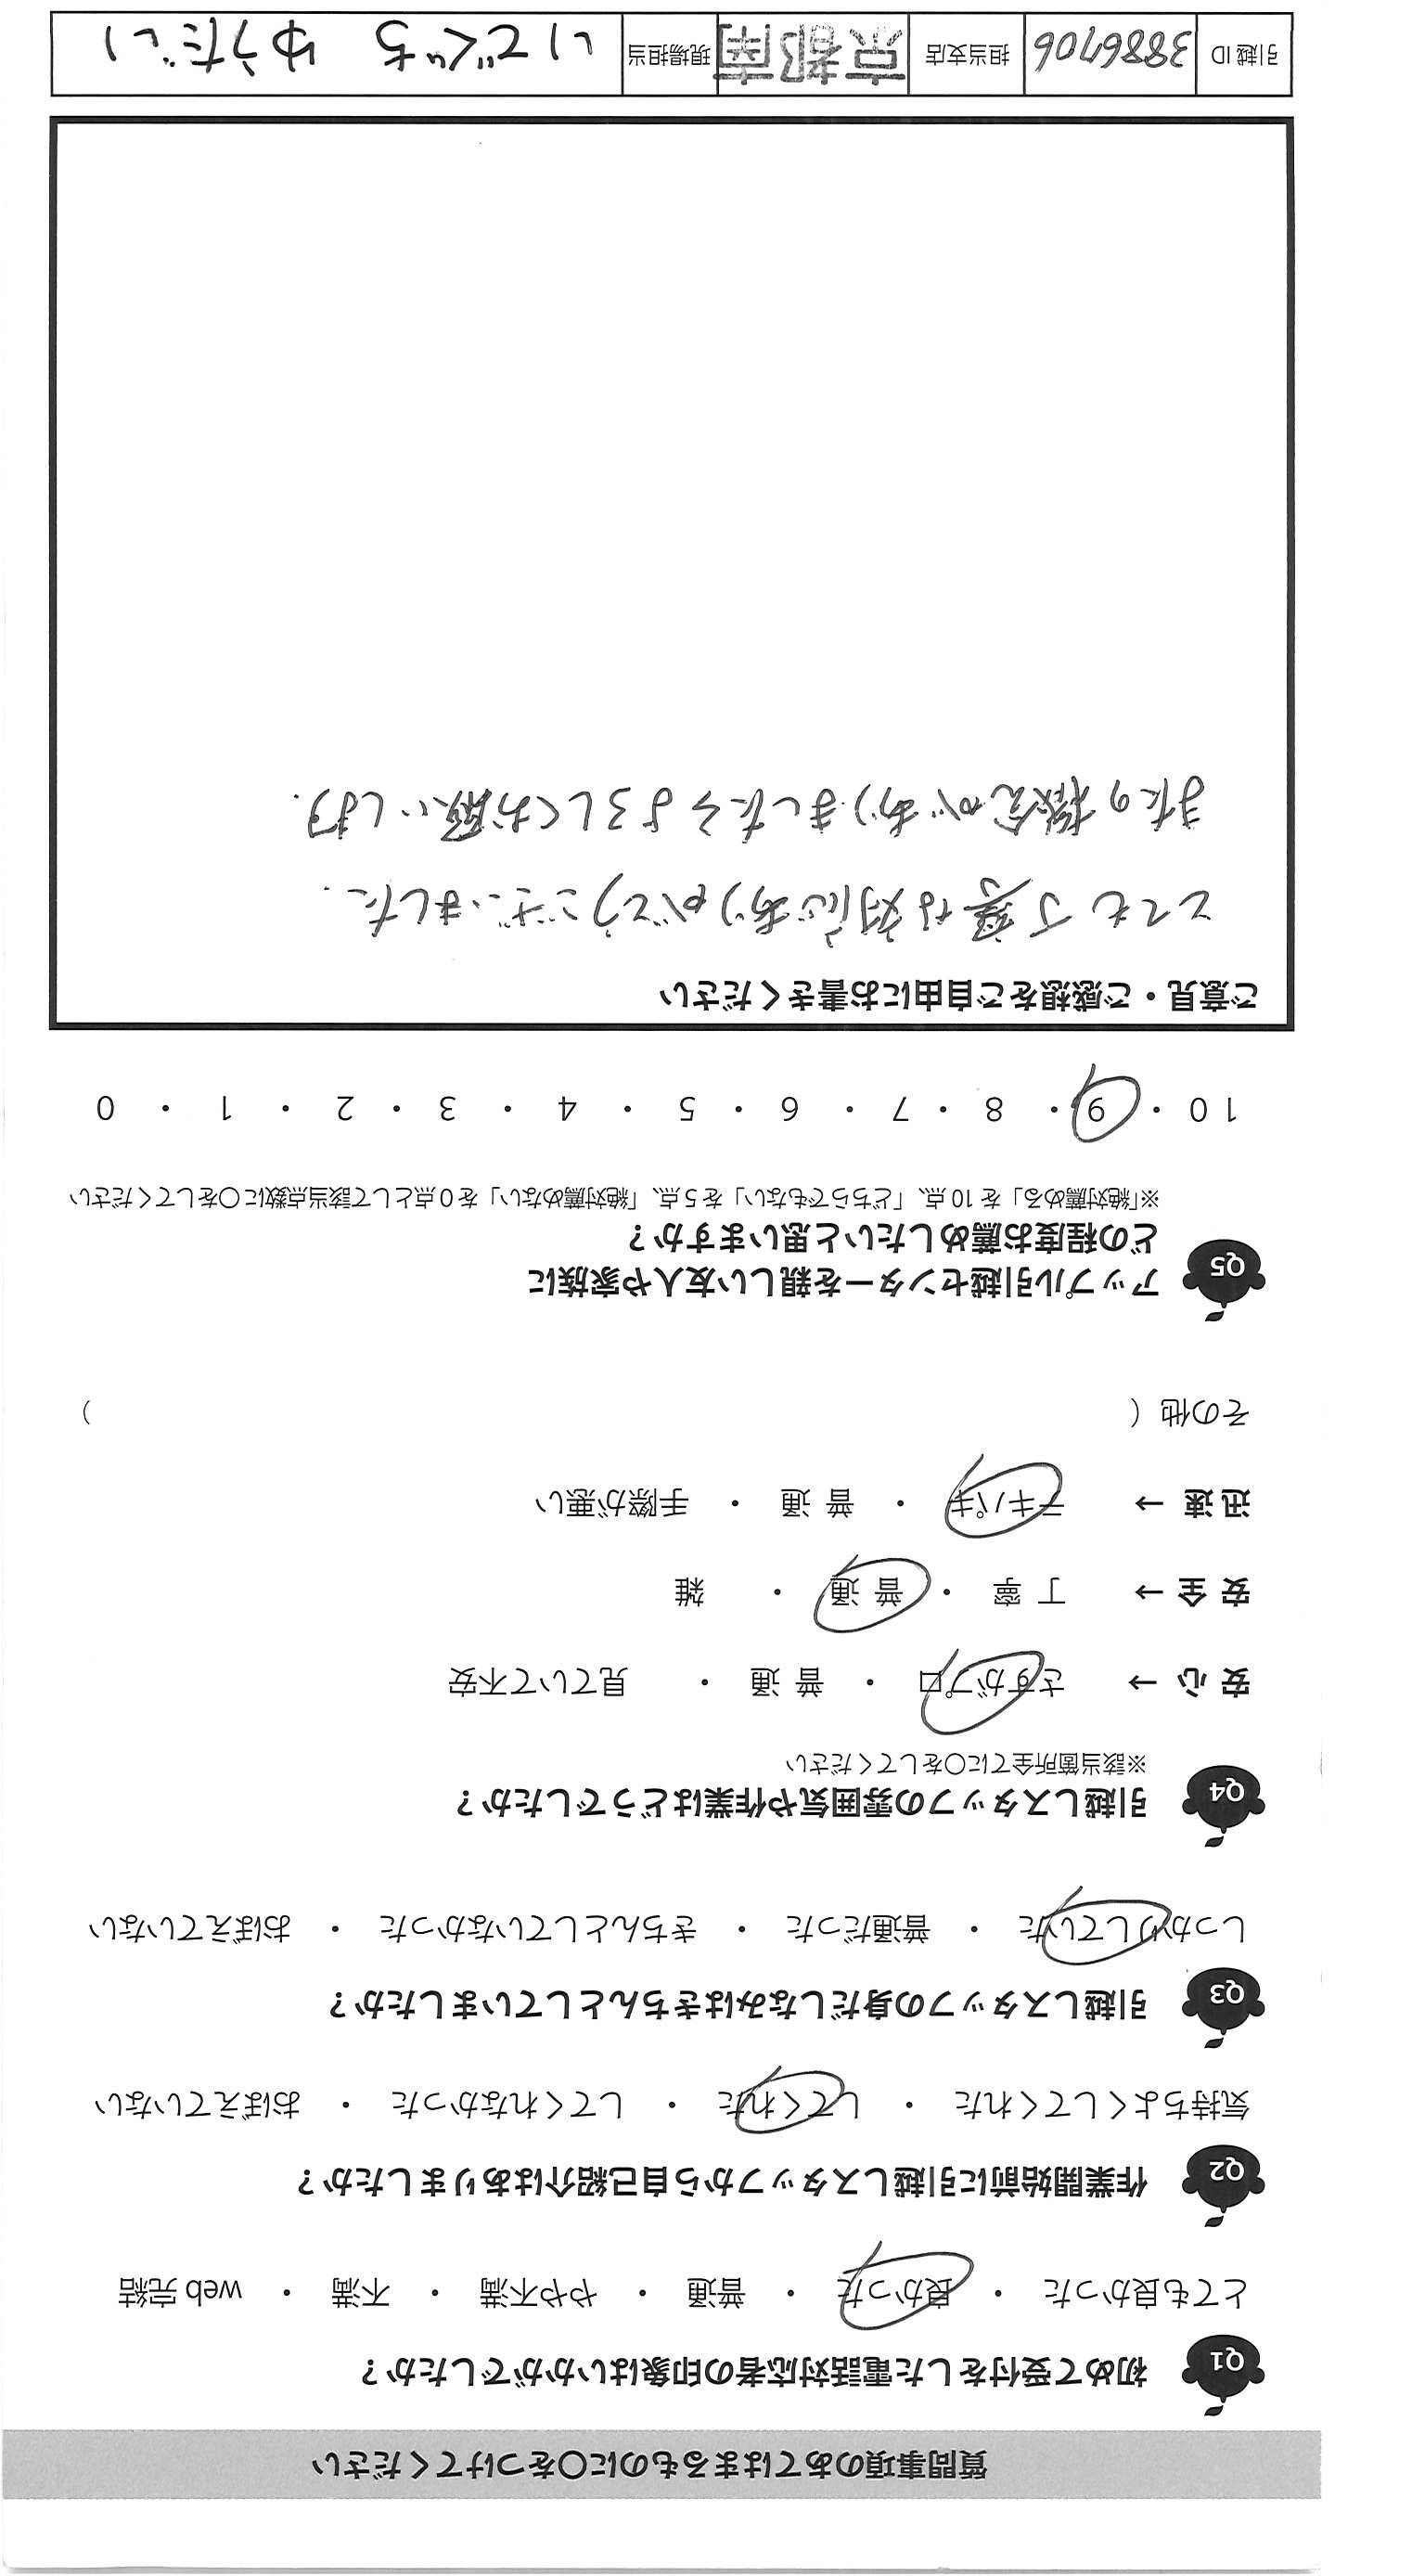 質問事項のあてはまるものに○をつけてください
Q1 初めて受付をした電話対応者の印象はいかがでしたか?
とても良かった ・ 良かった ・ 普通 ・ やや不満 ・ 不満 ・ web 完結
Q2 作業開始前に引越しスタッフから自己紹介はありましたか?
気持ちよくしてくれた ・ してくれた ・ してくれなかった ・ おぼえていない
Q3 引越しスタッフの身だしなみはきちんとしていましたか?
しっかりしていた ・ 普通だった ・ きちんとしていなかった ・ おぼえていない
Q4 引越しスタッフの雰囲気や作業はどうでしたか?
※該当箇所全てに○をしてください
安 心 → さすがプロ ・ 普 通 ・ 見ていて不安
安 全 → 丁 寧 ・ 普 通 ・ 雑
迅 速 → テキパキ ・ 普 通 ・ 手際が悪い
その他 ( )
Q5 アップル引越センターを親しい友人や家族に
どの程度お薦めしたいと思いますか?
※「絶対薦める」を 10 点、「どちらでもない」を 5 点、「絶対薦めない」を 0 点として該当点数に○をしてください
10 ・ 9 ・ 8 ・ 7 ・ 6 ・ 5 ・ 4 ・ 3 ・ 2 ・ 1 ・ 0
ご意見・ご感想をご自由にお書きください
とても丁寧な対応ありがとうございました.
またの機会がありましたらよろしくお願いします.
引越 ID 3886706 担当支店 京都南 現場担当 いでぐち ゆうだい